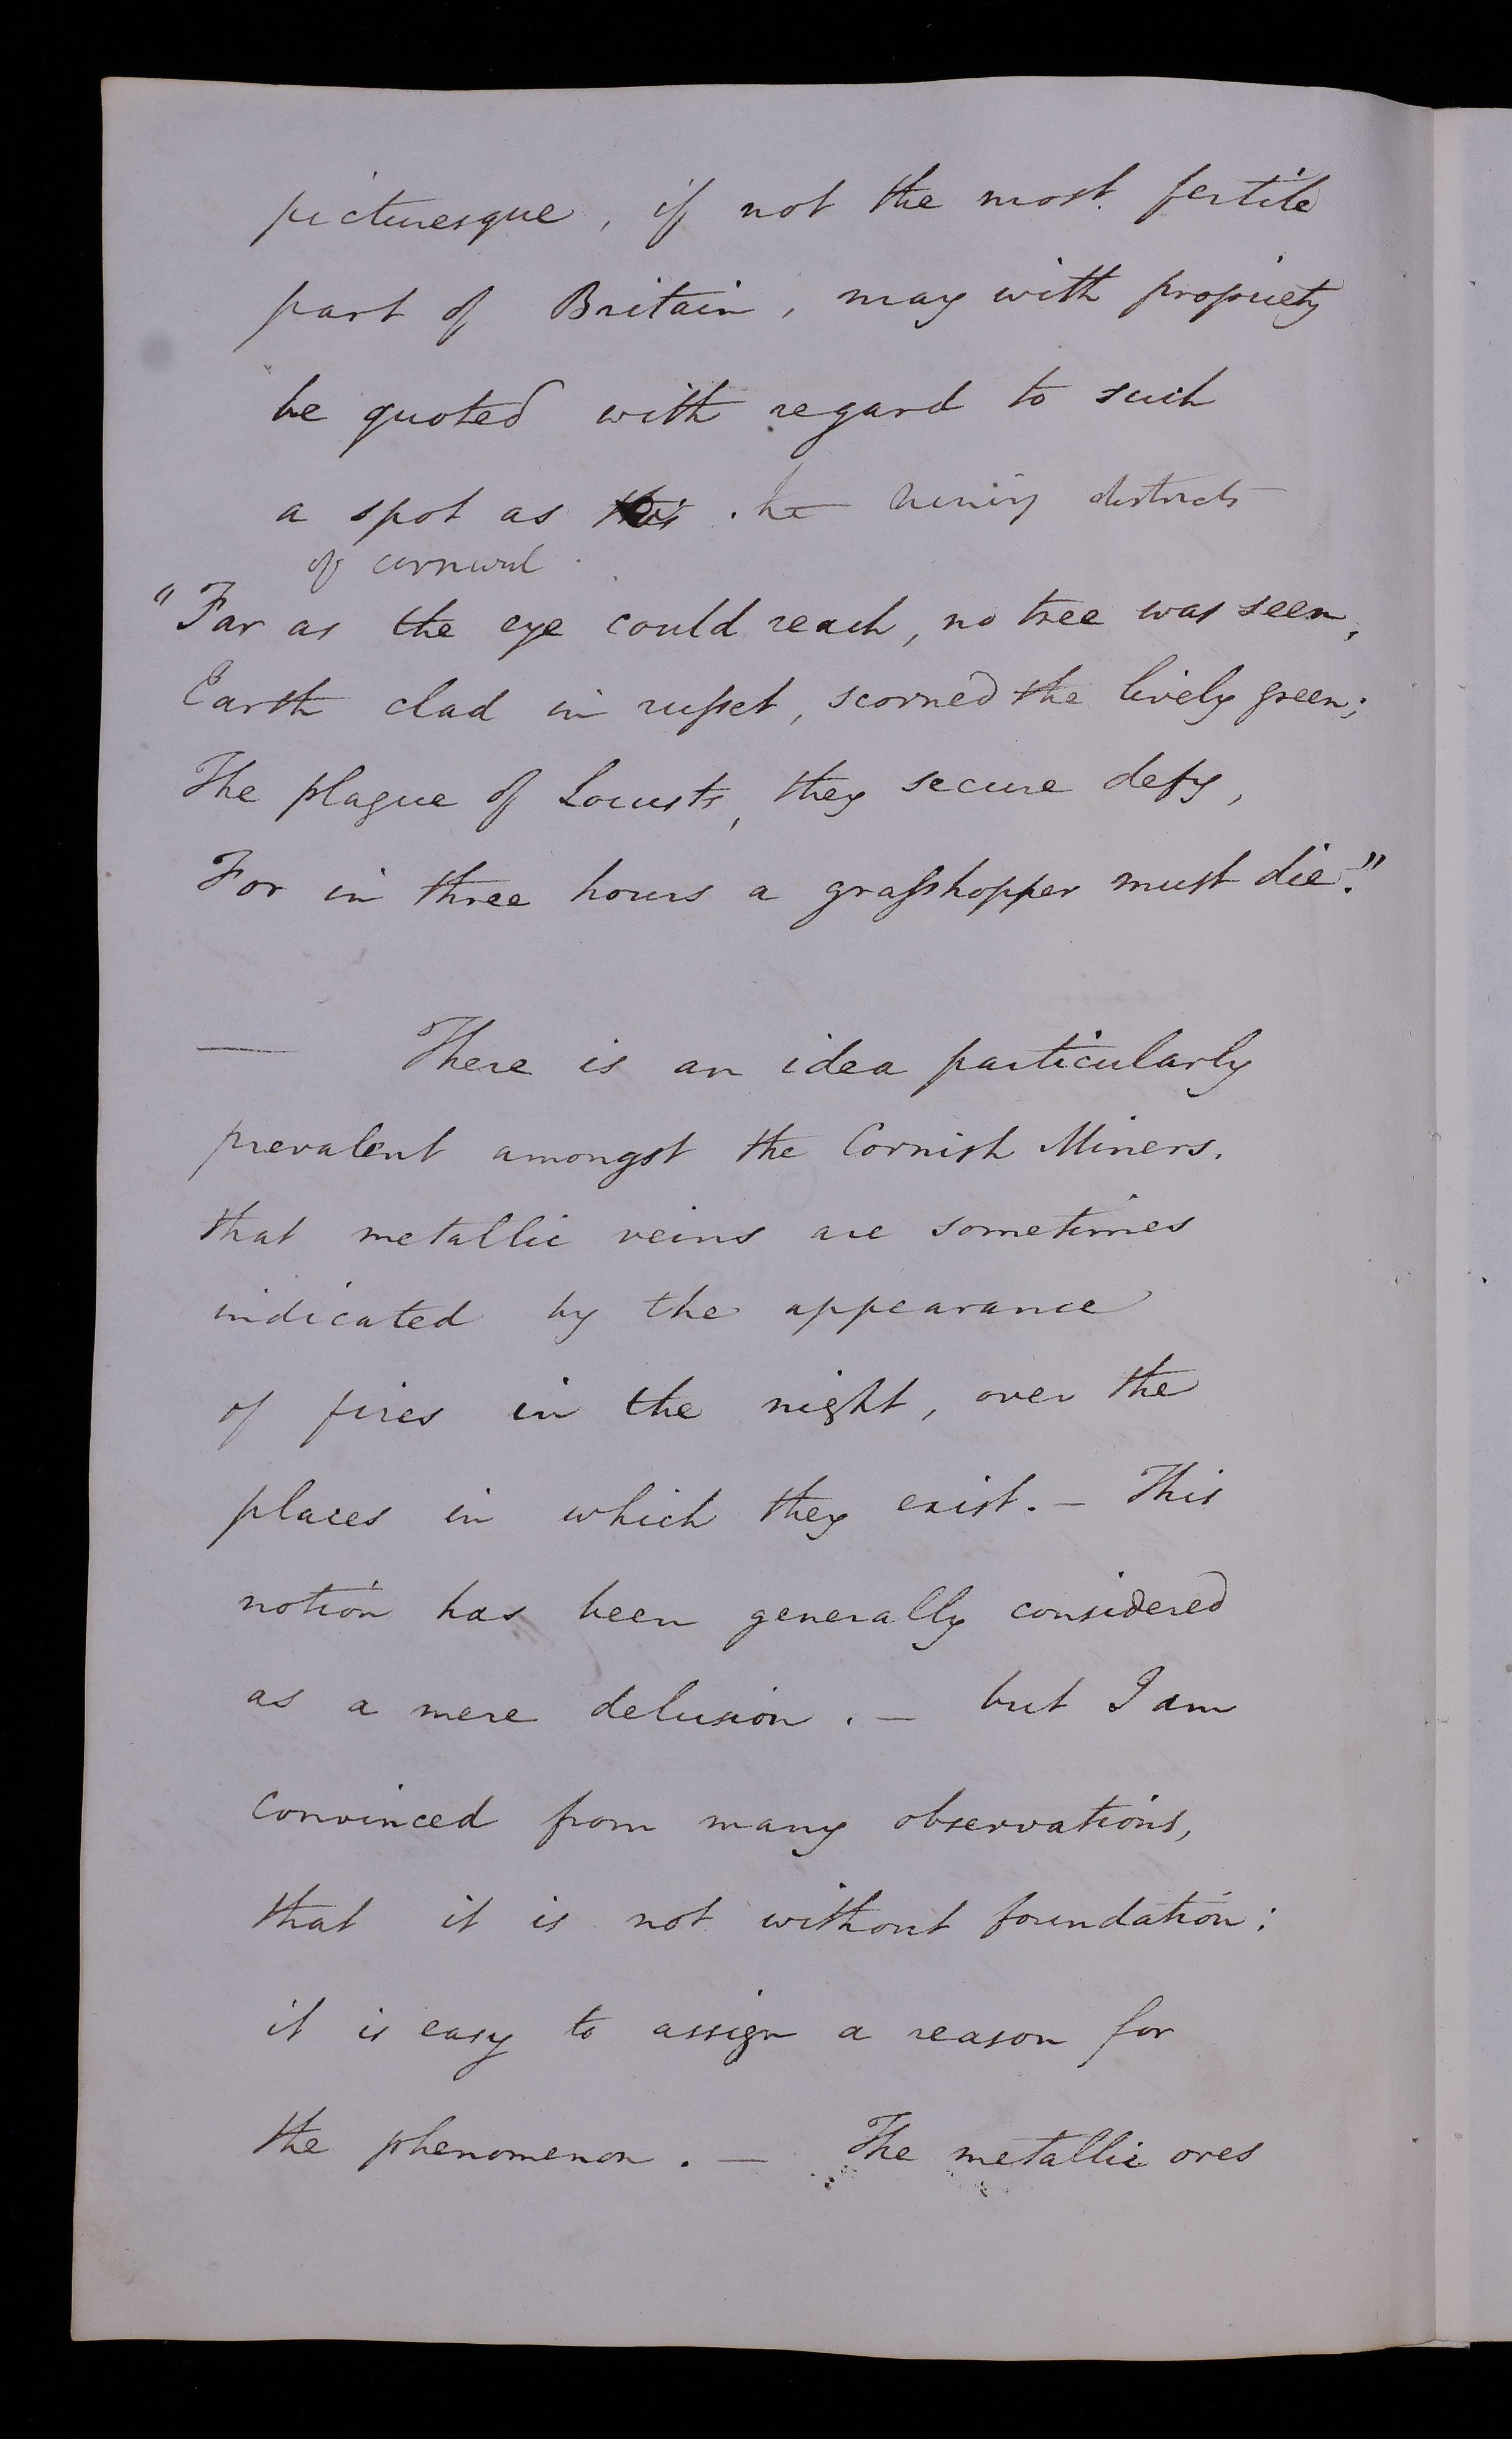 picturesque, if not the most fertile
part of Britain, may with propriety
be quoted with regard to such
a spot as this the mining districts
of cornwal.
"Far as the eye could reach, no tree was seen,
Earth clad in rufset, scorned the lively green;
The plague of Locusts, they secure defy,
For in three hours a grafshopper must die."
— There is an idea particularly
prevalent amongst the Cornish Miners.
that metallic veins are sometimes
indicated by the appearance
of fires in the night, over the
places in which they exist. — This
notion has been generally considered
as a mere delusion. — but I am
convinced from many observations,
that it is not without foundation:
it is easy to assign a reason for
the phenomenon. — The metallic ores